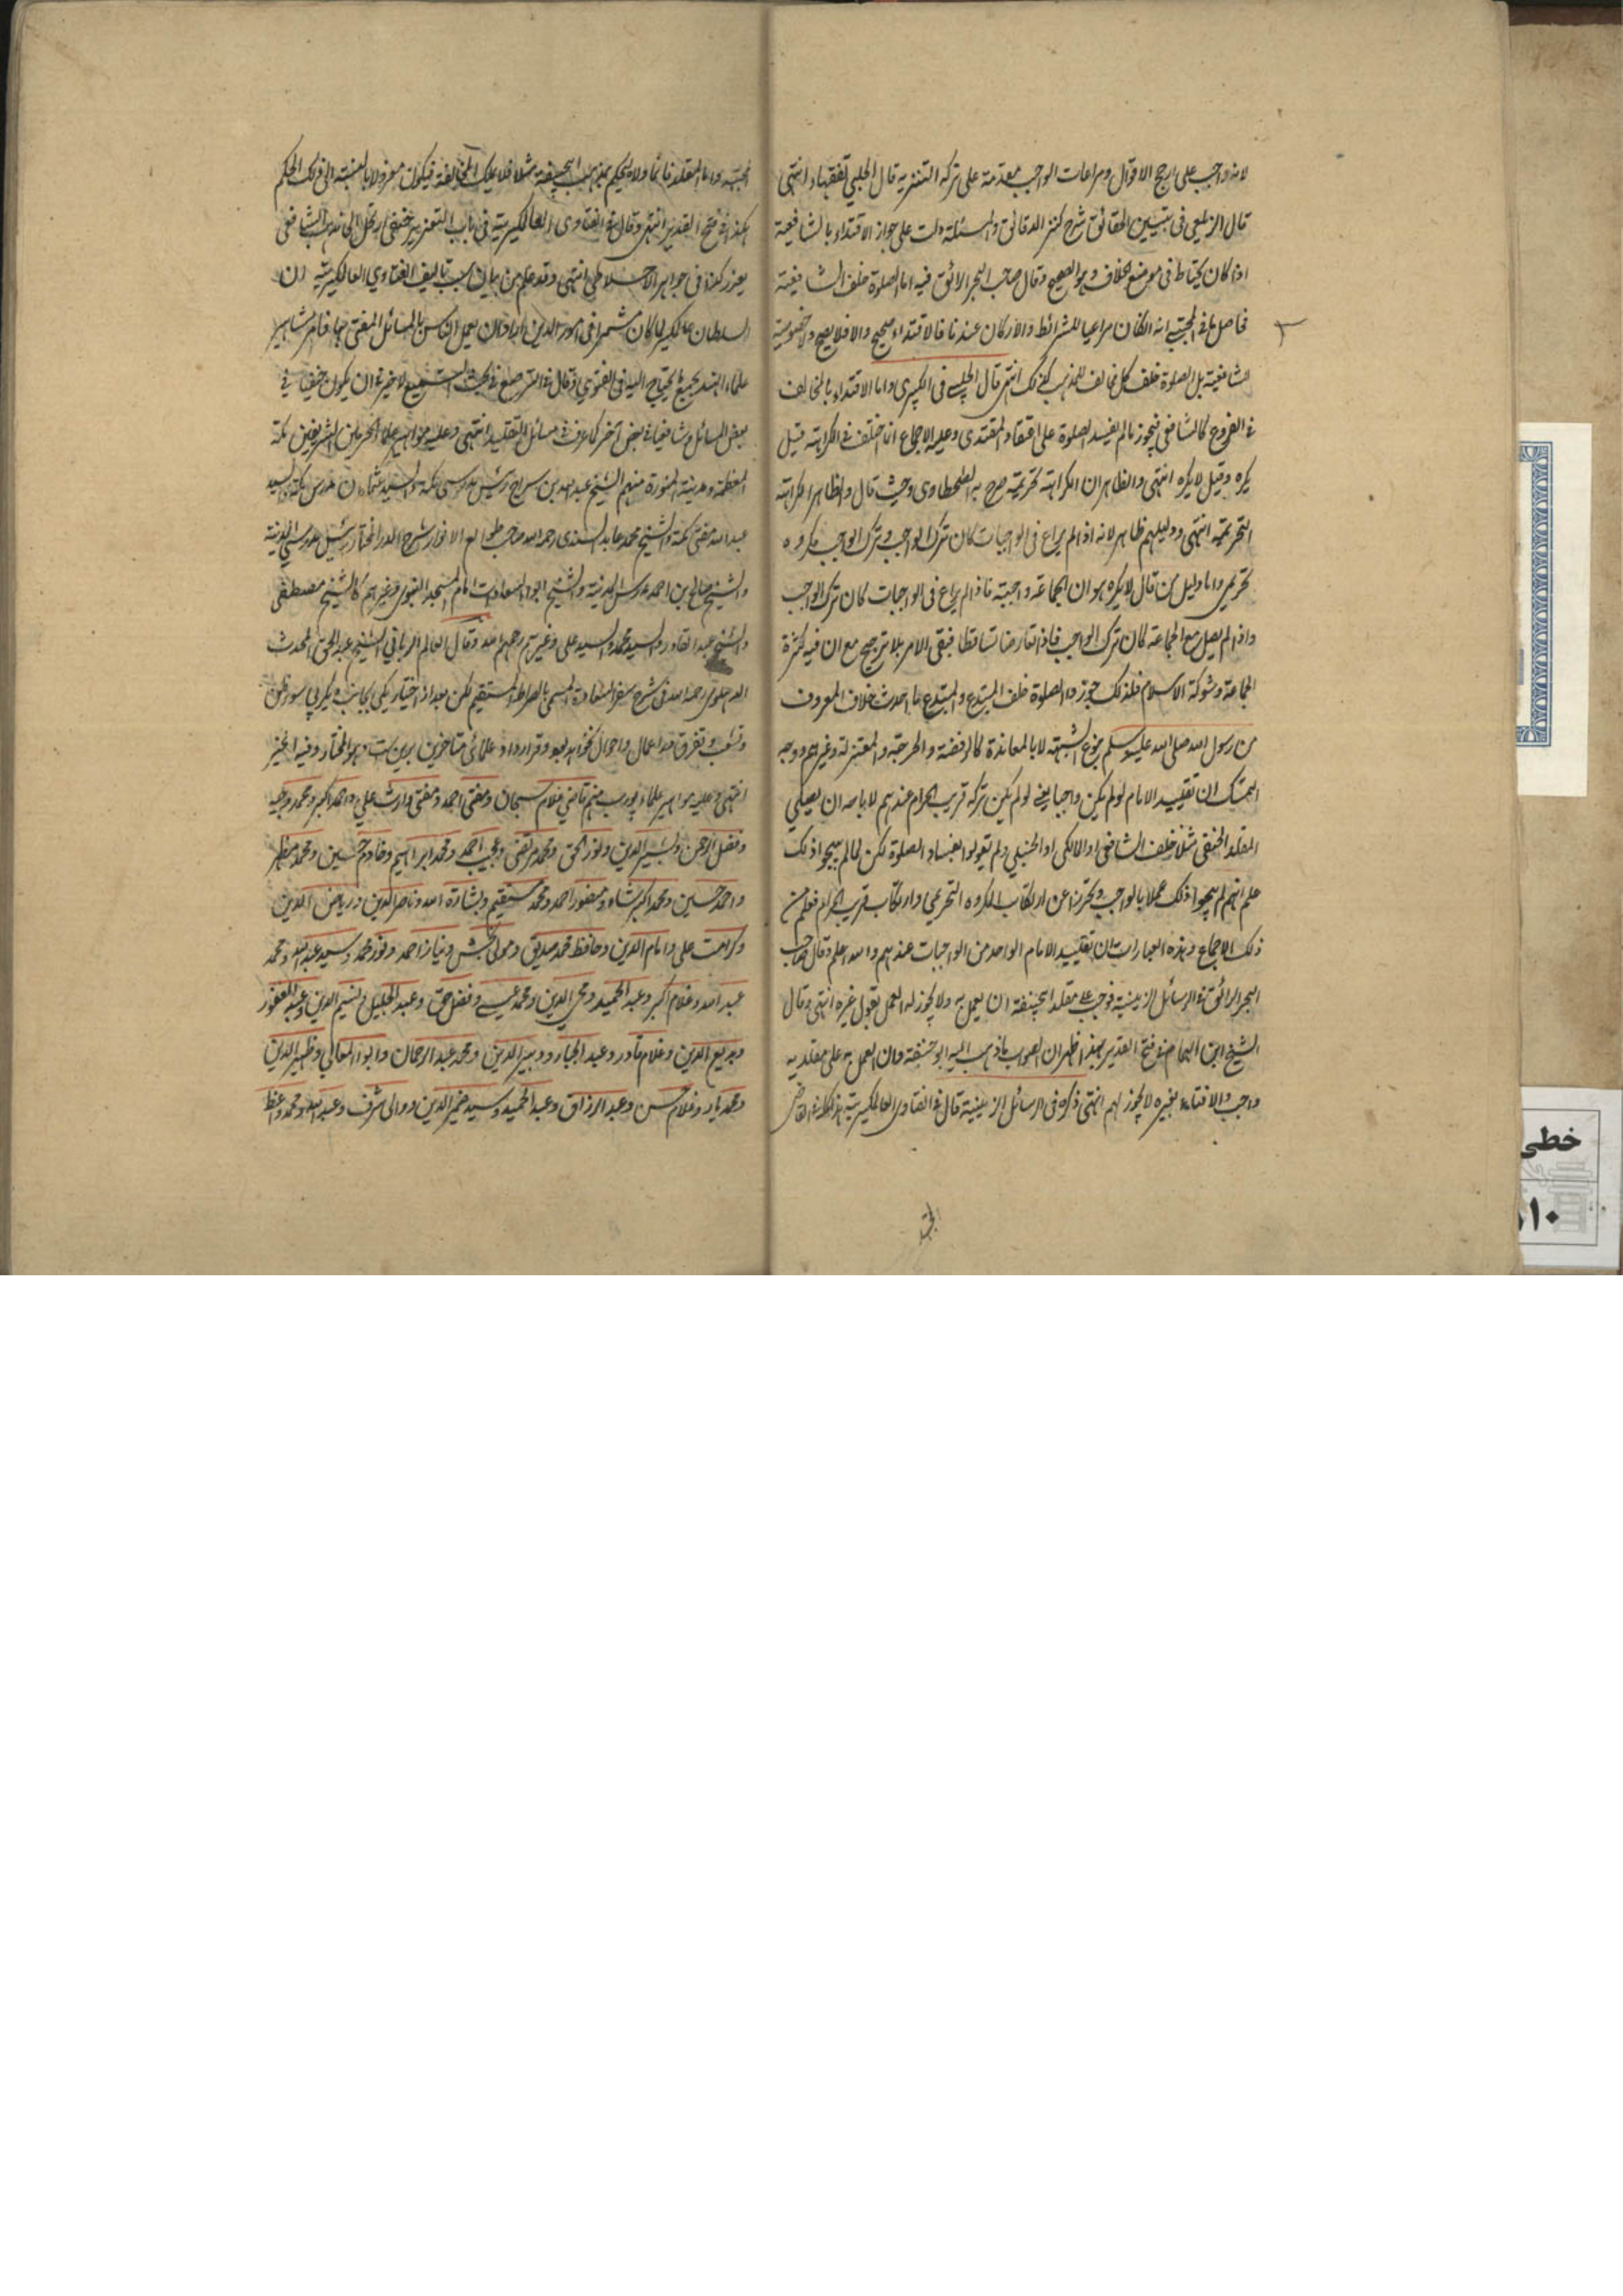 لانه واجب على ارجح الاقوال ومراعات الواجب مقدمة على ترك التنزيه قال الحلبي تفقها انتهى
قال الزيلعي فى تبيين الحقائق شرح كنز الدقائق والمسئلة دلت على جواز الاقتداء بالشافعية
اذا كان يحتاط فى موضع الخلاف وهو الصحيح وقال صاحب البحر الرائق فيه اما الصلوة خلف الشافعية
فحاصل ما فى المجتبى انه اذا كان مراعيا للشرائط والاركان عندنا فالاقتداء صحيح والا فلا يصح ولا خصوصية
الشافعية بل الصلوة خلف كل مخالف للمذهب كذلك انتهى قال الحلبي فى الكبيرى واما الاقتداء بالمخالف
فى الفروع كالشافعى فيجوز ما لم يفسد الصلوة على اعتقاد المقتدى وعليه الاجماع انما اختلف فى الكراهة قيل
يكره وقيل لا يكره انتهى والظاهر ان الكراهة تحريمية صرح به الطحطاوى وحيث قال والظاهر الكراهة
التحريمية انتهى ودليلهم ظاهر لانه اذا لم يراع فى الواجبات كان ترك الواجب وترك الواجب مكروه
تحريمى واما دليل من قال لا يكره هو ان الجماعة واجبة فاذا لم يراع فى الواجبات كان ترك الواجب
واذا لم يصل مع الجماعة كان ترك الواجب فاذا تعارضا تساقطا فبقى الامر بلا ترجيح مع ان فيه كثرة
الجماعة وشوكة الاسلام فلذلك جوزوا الصلوة خلف المبتدع والمبتدع ما احدث خلاف المعروف
من رسول الله صلى الله عليه وسلم بنوع الشبهة لا بالمعاندة كالرفضة والخارجية والمعتزلة وغيرهم ووجه
التمسك ان تقليد الامام لو لم يكن واجبا يعنى لو لم يكن تركه قريب الحرام عندهم لا باس ان يصلي
المقلد الحنفى مثلا خلف الشافعى او المالكى او الحنبلي ولم يقولوا بفساد الصلوة لكن لما لم يبيحوا ذلك
علم انهم لم يبيحوا ذلك عملا بالواجب وتحرزا عن ارتكاب المكروه التحريمي وارتكاب قريب الحرام فعلم من
ذلك الاجماع وهذه العبارات ان تقليد الامام الواحد من الواجبات عندهم والله اعلم وقال صاحب
البحر الرائق فى الرسائل الزينية فوجب على مقلد ابيحنيفة ان يعمل به ولا يجوز له العمل بقول غيره انتهى وقال
الشيخ ابن الهمام فى فتح القدير بهذا ظهر ان الصواب ما ذهب اليه ابو حنيفة وان العمل به على مقلديه
واجب والافتاء بغيره لا يجوز لهم انتهى ذكره فى الرسائل الزينية قال فى الفتاوى العالمكيرية هذا كله فى القاضى
المجتهد
المجتهد واما المقلد فانما ولاه ليحكم بمذهب ابيحنيفة مثلا فلا يملك المخالفة فيكون معزولا بالنسبة الى ذلك الحكم
هكذا فى فتح القدير انتهى وقال فى الفتاوى العالمكيرية فى باب التعزير حنفى ارتحل الى مذهب الشافعى
يعزر كذا فى جواهر الاخلاطى انتهى وقد علم من بيان سبب تاليف الفتاوي العالمكيرية ان
السلطان عالمكير لما كان مشمرا فى امور الدين اراد ان يعمل الناس بالمسائل المفتى بها فامر مشاهير
علماء الهند بجمع ما يحتاج اليه فى الفتوي وقال فى التوضيح فى بحث لاخير فى ان يكون حنفيا فى
بعض المسائل وشافعيا فى بعض آخر كما عرف فى مسائل التقليد انتهى وعليه مواهير علماء الحرمين الشريفين مكة
المعظمة ومدينة المنورة منهم الشيخ عبد الله بن سراج رئيس مدرسى مكة والسيد عثمان مدرس مكة والسيد
عبد الله مفتى مكة والشيخ محمد عابد السندى رحمه الله صاحب طوالع الانوار شرح الدر المختار رئيس مدرسى المدينة
والشيخ صالح بن احمد مدرس المدينة والشيخ ابو السعادات امام المسجد النبوى وغيرهم كالشيخ مصطفى
والشيخ عبد القادر والسيد محمد والسيد على وغيرهم رحمهم الله وقال العالم الربانى الشيخ عبد الحق المحدث
الدهلوى رحمه الله فى شرح سفر السعادة المسمى بالصراط المستقيم لكن بعد از اختيار يكى بجانب ديگرى بى سوء ظن
وتشعب وتفرق در اعمال واحوال نخواهد بود وقرارداد علمائى متاخرين برين ست وهو المختار وفيه الخير
انتهى وعليه مواهير علماء پورب منهم قاضى غلام سبحان ومفتى احمد ومفتى وارث علي واحمد اكبر ومحمد وجيه
وفضل الرحمن وبشير الدين ونور الحق ومحمد مرتضى ومجيب احمد ومحمد ابراهيم وخادم حسين ومحمد مظهر
واحمد حسين ومحمد اكبر شاه ومنصور احمد ومحمد مستقيم وبشارة الله وناصر الدين ورياض الدين
وكرامت على وامام الدين وحافظ محمد صديق ومولى بخش ونياز احمد ونور محمد وسيد عبد الله ومحمد
عبد الله وغلام اكبر وعبد الحميد ومحى الدين ومحمد عيسى وفضل حق وعبد الجليل ونسيم الدين وعبد الغفور
وبديع الدين وغلام قادر وعبد الجبار ودبير الدين ومحمد عبد الرحمان وابو المعالي وظهير الدين
ومحمد يار وغلام حسن وعبد الرزاق وعبد الحميد وسيد ضمير الدين ووالى شرف وعبد الله ومحمد واعظ
خطى